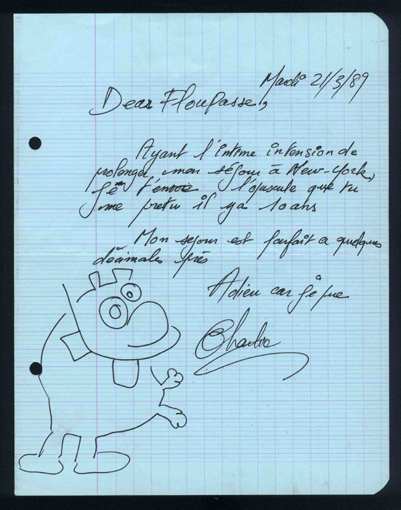 Mardi 21/3/89
Dear Floupasse,
Ayant l'intime intension de
prolonger mon séjour à New-York,
je t'envoie l'opuscule que tu
me pretu il y a 10 ans
Mon sejour est parfait a quelques
décimales près
Adieu car je pue